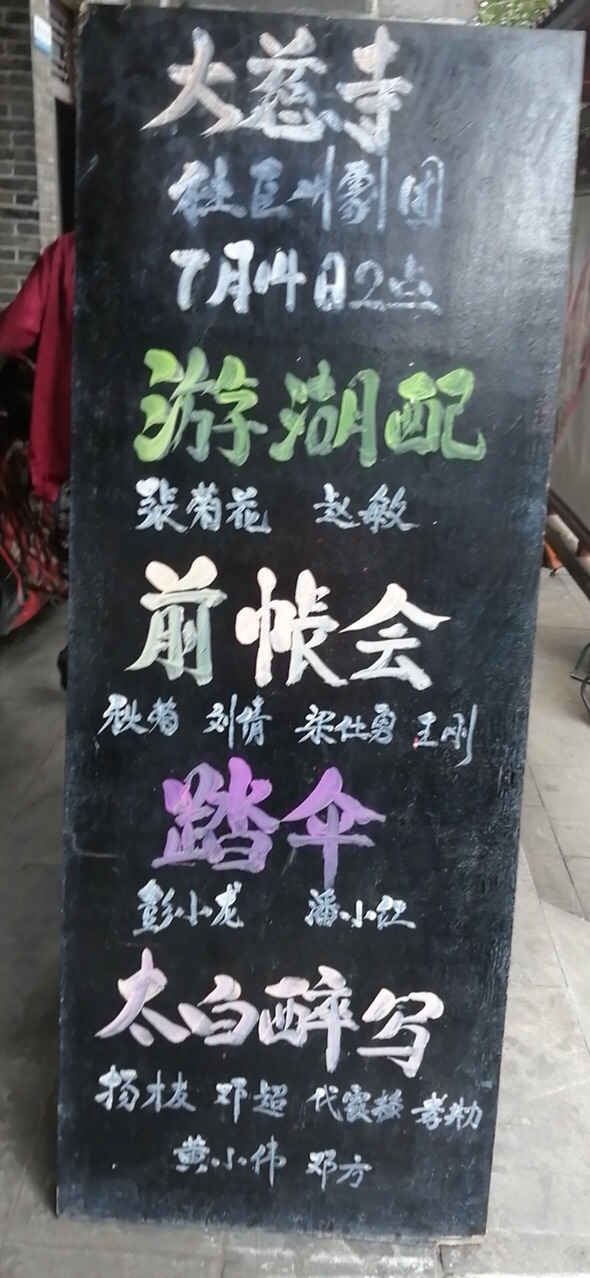 大慈寺
社区川剧团
7月14日2点
游湖配
张菊花 赵敏
前帐会
秋菊 刘倩 梁仕勇 王刚
踏伞
彭小龙 潘小红
太白醉写
扬枝友 邓超 代震
黄小伟 邓方